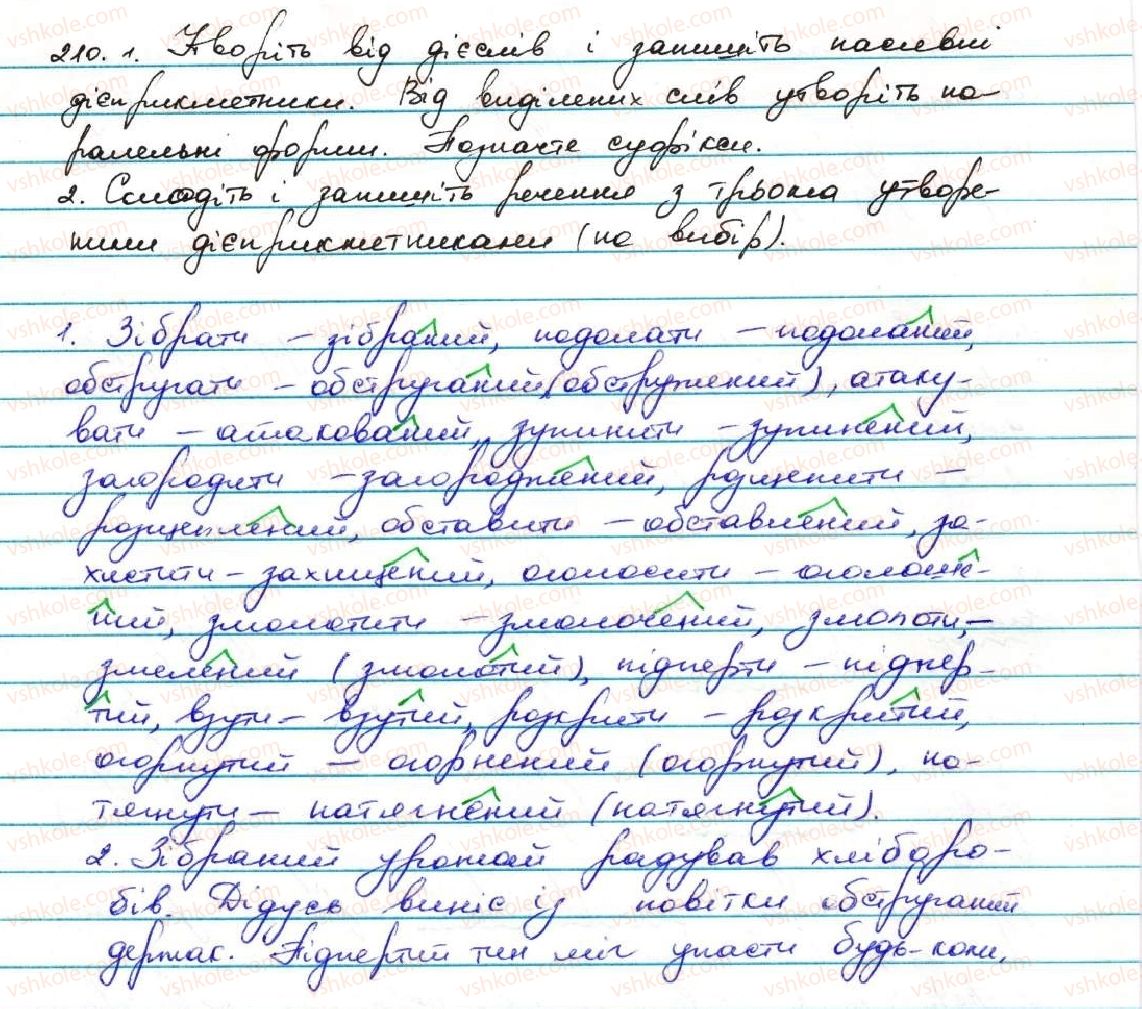 210. 1. Утворіть від дієслів і запишіть пасивні
дієприкметники. Від виділених слів утворіть па-
ралельні форми. Позначте суфікси.
2. Складіть і запишіть речення з трьома утворе-
ними дієприкметниками (на вибір).
1. Зібрати – зібраний, подолати – подоланий,
обстругати – обструганий (обстружений), атаку-
вати – атакований, зупинити – зупинений,
загородити – загороджений, розщепити –
розщеплений, обставити – обставлений, за-
хистити – захищений, оголосити – оголоше-
ний, змолотити – змолочений, змолоти –
змелений (змолотий), підперти – підпер-
тий, взути – взутий, розкрити – розкритий,
огорнутий – огорнений (огорнутий), на-
тягнути – натягнений (натягнутий).
2. Зібраний урожай радував хліборо-
бів. Дідусь виніс із повітки обструганий
держак. Підпертий тин міг упасти будь-коли.